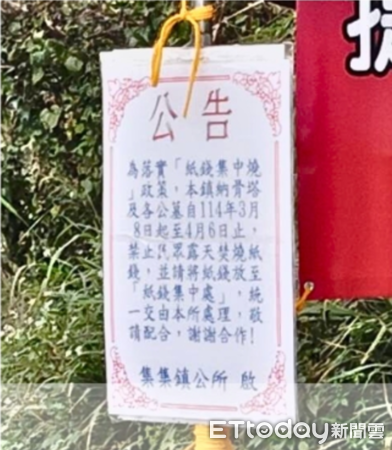 公告
為落實「紙錢集中燒
」政策，本鎮納骨塔
及各公墓自114年3月
8日起至4月6日止，
禁止民眾露天焚燒紙
錢，並請將紙錢放至
「紙錢集中處」，統
一交由本所處理，敬
請配合，謝謝合作！
集集鎮公所 啟
ETtoday新聞雲